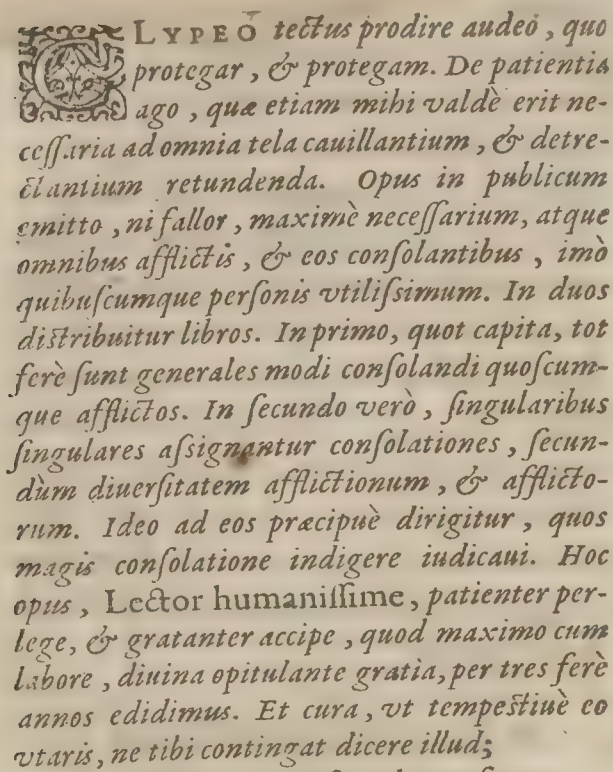 CLYPEO tectus prodire audeo, quo
protegar, & protegam. De patientia
ago, quæ etiam mihi valdè erit ne-
ceſſaria ad omnia tela cauillantium, & detre-
ctantium retundenda. Opus in publicum
emitto, ni fallor, maximè neceſſarium, atque
omnibus afflictis, & eos conſolantibus, imò
quibuſcumque perſonis vtiliſsimum. In duos
diſtribuitur libros. In primo, quot capita, tot
ferè ſunt generales modi conſolandi quoſcum-
que afflictos. In ſecundo verò, ſingularibus
ſingulares aſsignantur conſolationes, ſecun-
dùm diuerſitatem afflictionum, & afflicto-
rum. Ideo ad eos præcipuè dirigitur, quos
magis conſolatione indigere iudicaui. Hoc
opus, Lector humaniſſime, patienter per-
lege, & gratanter accipe, quod maximo cum
labore, diuina opitulante gratia, per tres ferè
annos edidimus. Et cura, vt tempeſtiuè eo
vtaris, ne tibi contingat dicere illud;